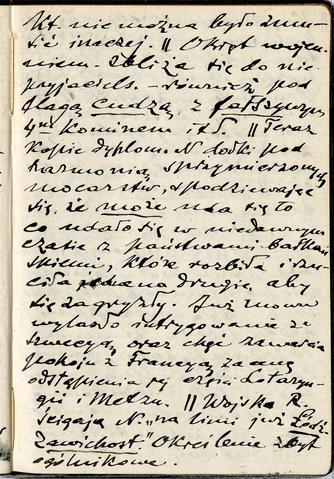 kt. nie można było zmu-
sić inaczej. || Okręt wojen-
niem. zbliża się do nie-
przyjaciela – również pod
flagą cudzą, z fałszywym
4ym kominem itd. || Teraz
kopie dyplom. N. dołki pod
harmonią sprzymierzonych
mocarstw, spodziewając
się, że może uda się to
co udało się w niedawnym
czasie z państwami bałkań
skiemi, które rozbiła i rzu-
ciła jedna na drugie, aby
się zagryzły. Już mowa
wylazło intrygowanie ze
Szwecyą, oraz chęć zawarcia
pokoju z Francyą za cenę
odstąpienia jej części Lotaryn-
gii i Metzu. || Wojska R.
ścigają N. "na linii już Łodz-
Zawichost." Określenie zbyt
ogólnikowe.